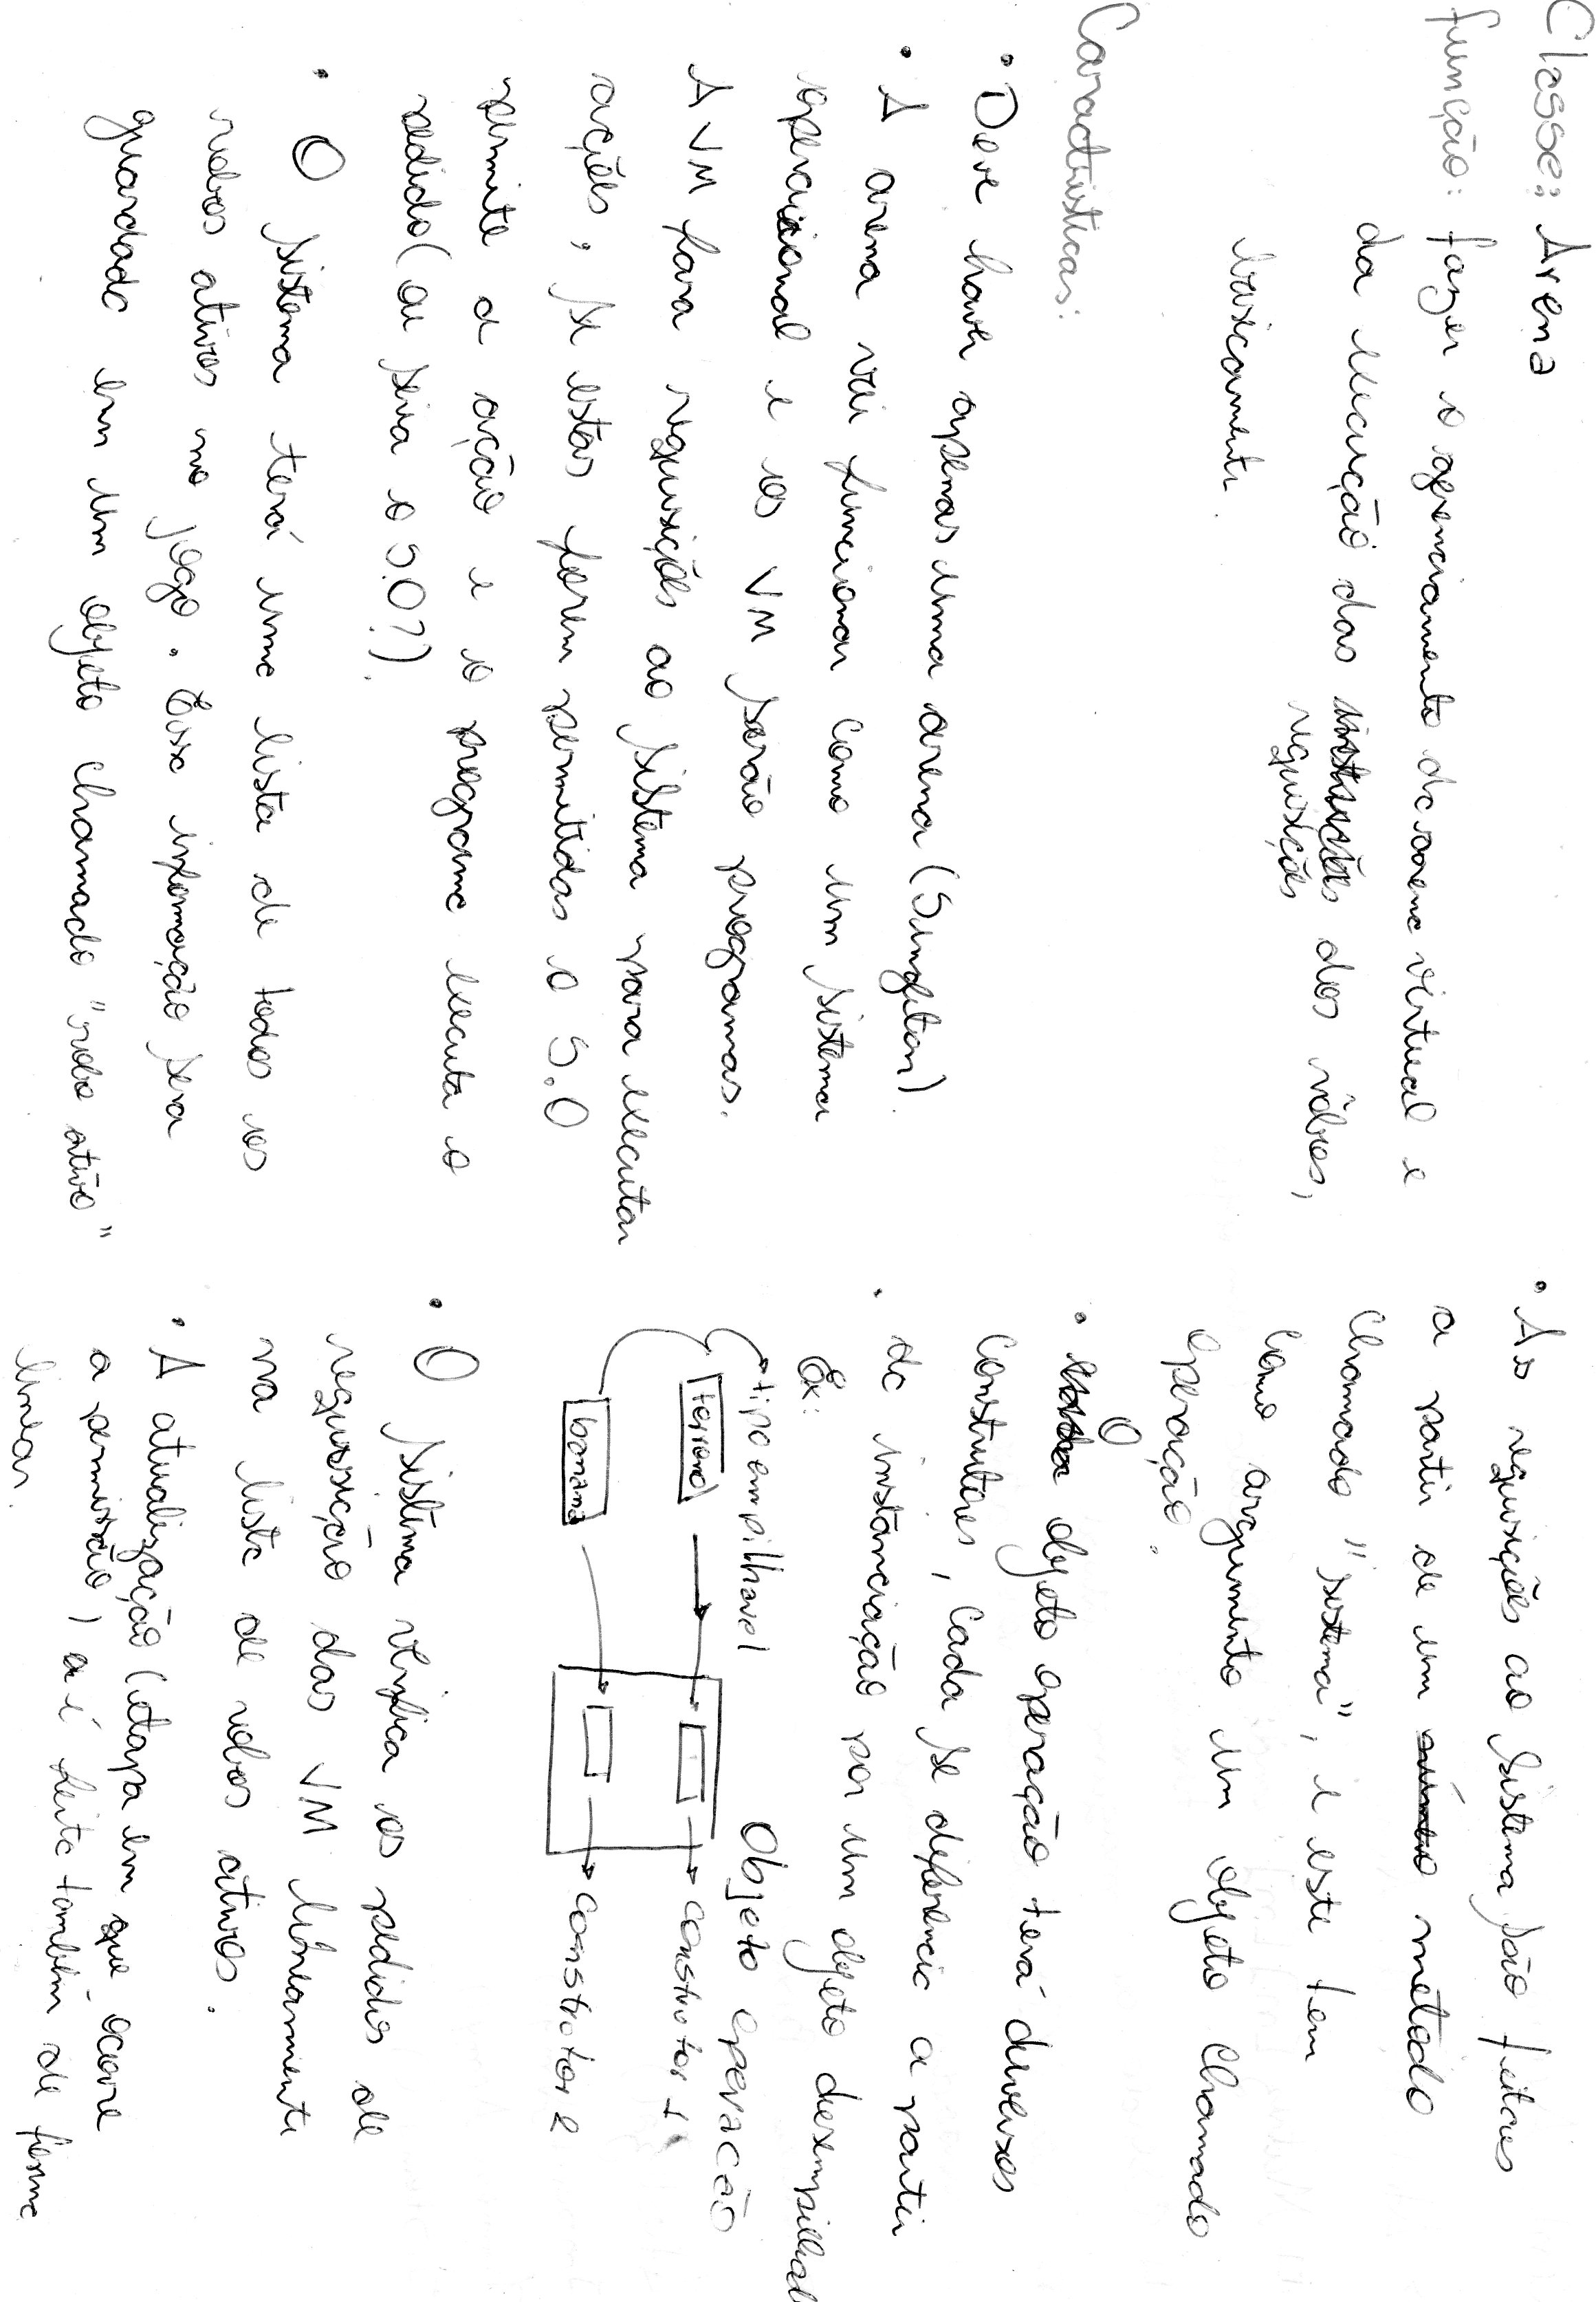 Classe: Arena
função: fazer o gerenciamento da arena virtual e
da execução das instruções dos robos,
requisições
basicamente.
Características:
• Deve haver apenas uma arena (Singleton).
• A arena vai funcionar como um sistema
operacional e os VM serão programas.
A VM fara requisições ao sistema para executar
ações, se estas forem permitidas o S.O
permite a ação e o programa executa o
pedido (ou seria o S.O?).
• O sistema terá uma lista de todos os
robos ativos no jogo. Essa informação sera
guardado em um objeto chamado "robo ativo"
• As requisições ao sistema são feitas
a partir de um método
chamado "sistema", e este tem
como argumento um objeto chamado
operação.
• O objeto operação terá diversos
construtores, cada se diferencia a partir
de instanciação por um objeto desempilhado
Ex:
tipo empilhavel
Objeto operação
terreno
construtor 1
banana
construtor 2
• O sistema verifica os pedidos de
requisição das VM linearmente
na lista de robos ativos.
• A atualização (etapa em que ocorre
a permissão) a é feita também de forma
linear.